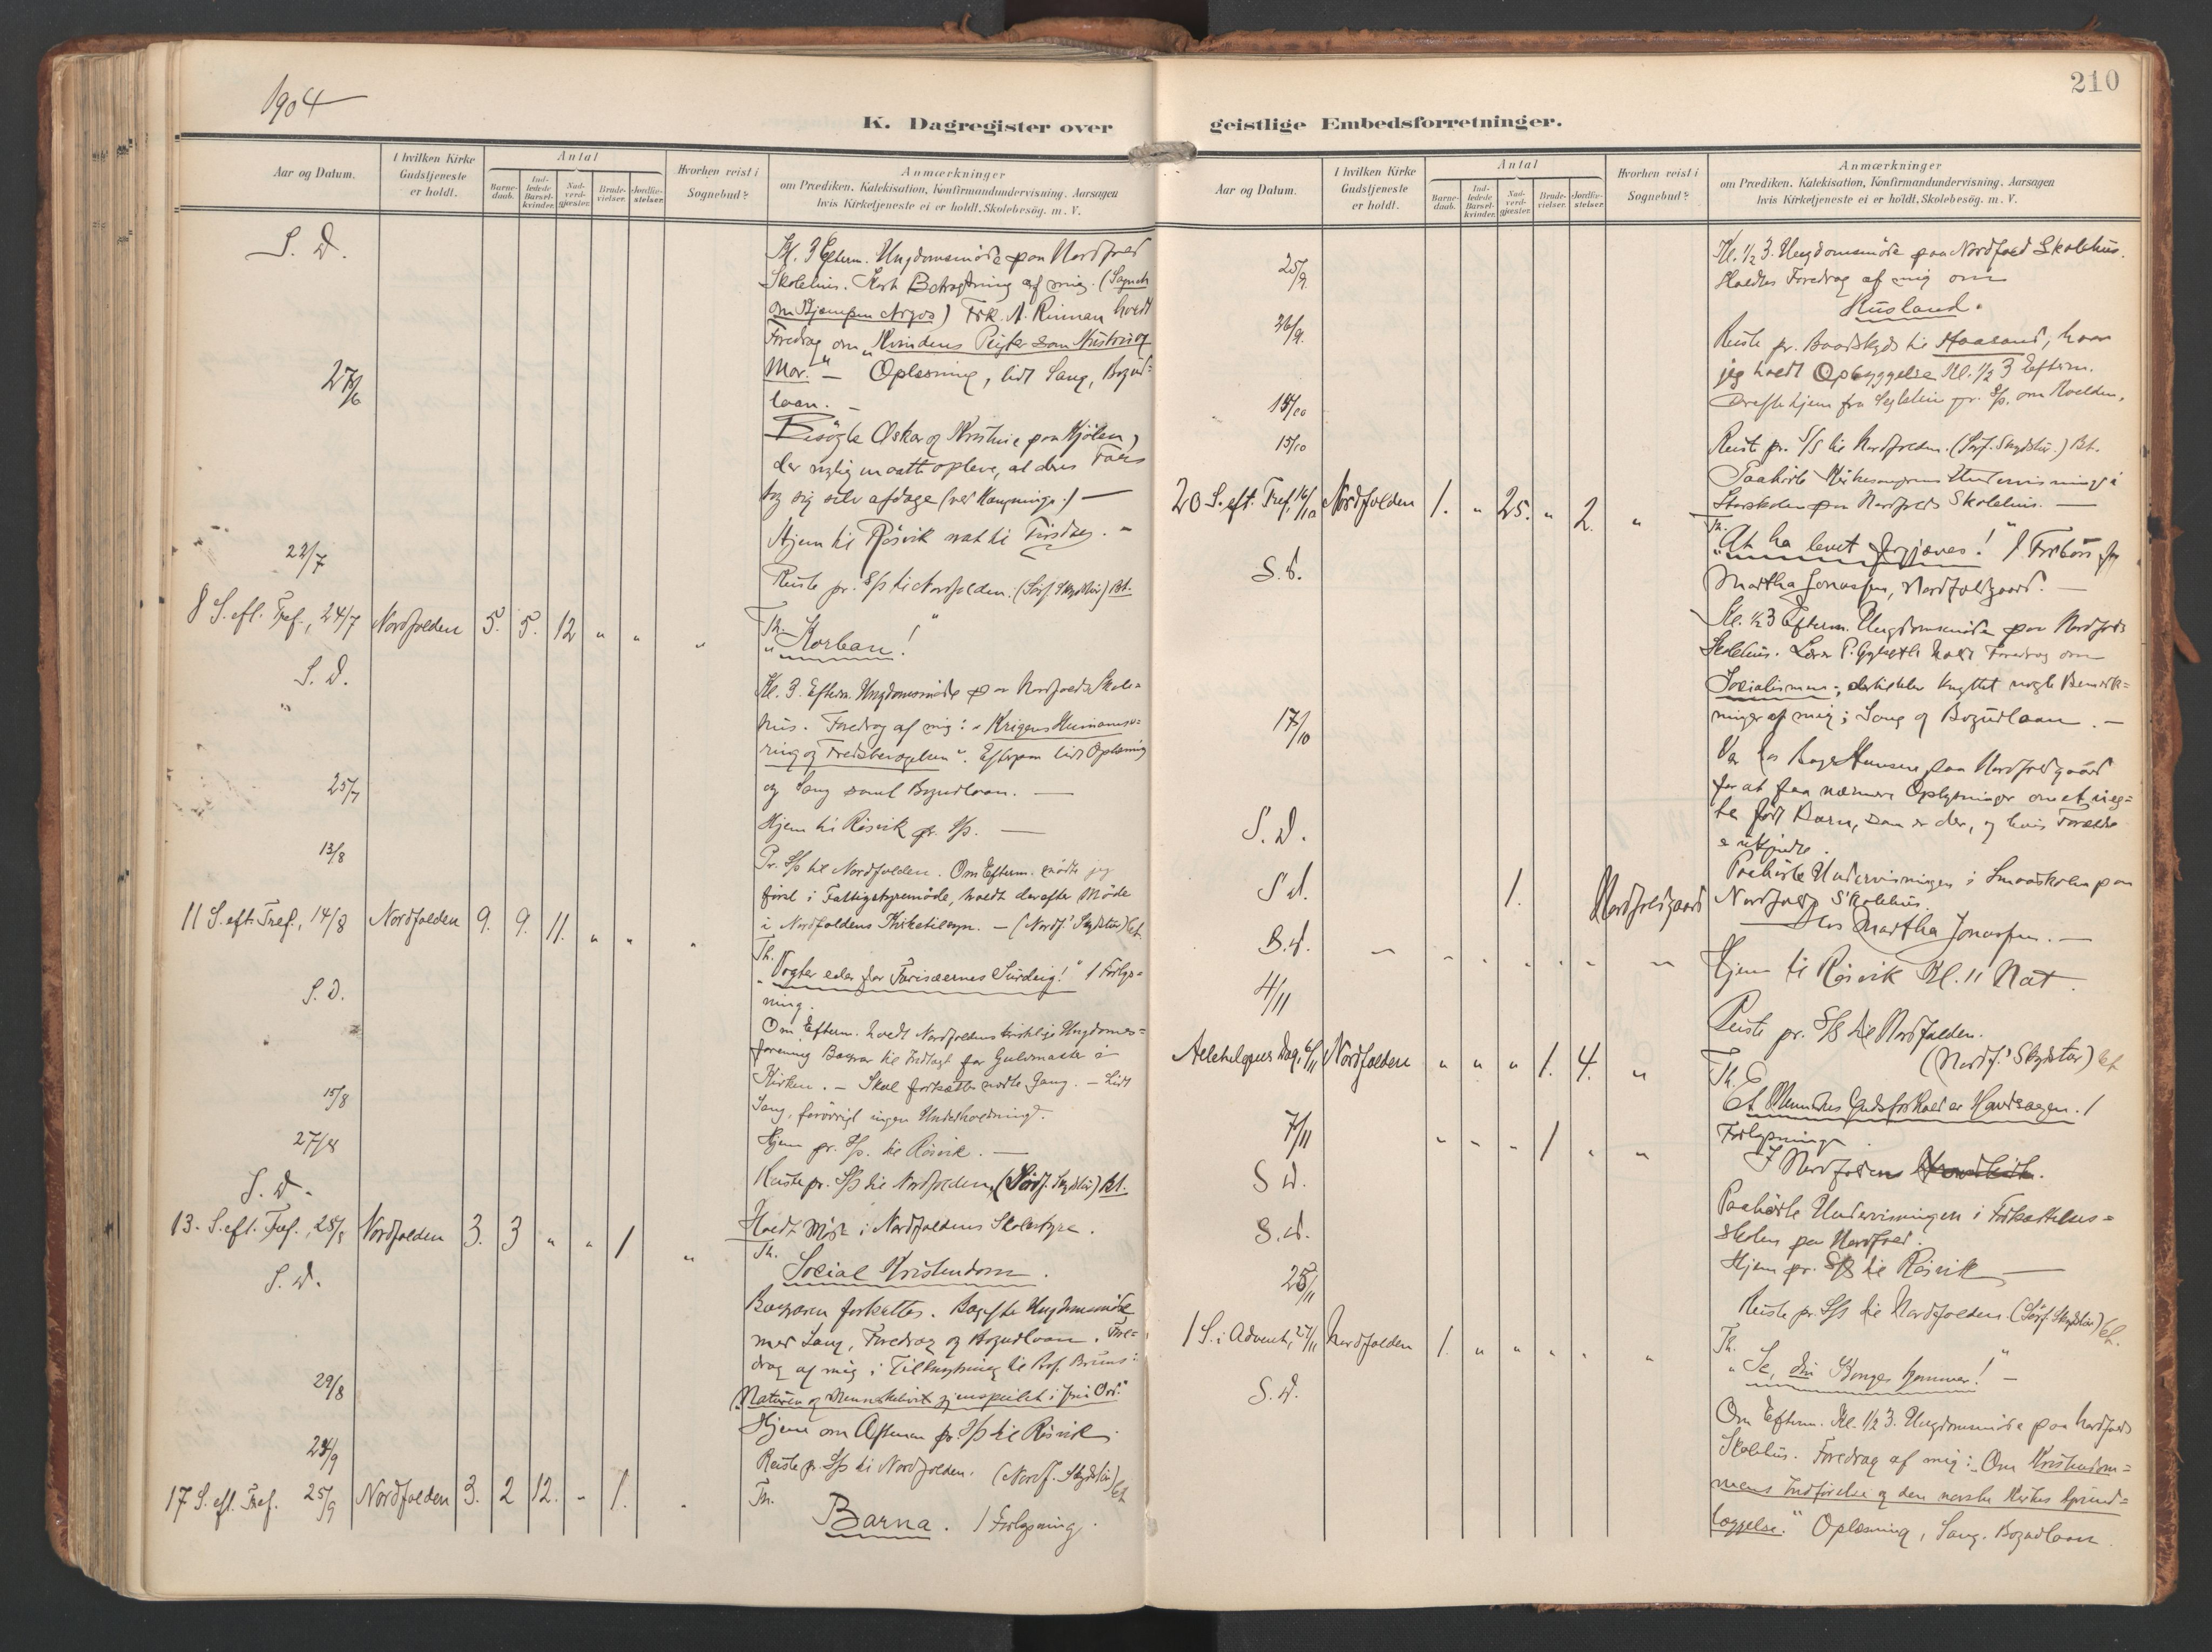 1904
K. Dagregister over
Aar og Datum.
I hvilken Kirke Gudstjeneste er holdt.
Antal
Barne-daab.
Ind-ledede Barsel-kvinder.
Nad-verd-gjæster.
Brude-vielser.
Jordfæ-stelser.
Hvorhen reist i Sognebud?
Anmærkninger
om Prædiken, Katekisation, Konfirmandundervisning, Aarsagen
hvis Kirketjeneste ei er holdt, Skolebesög. m. V.
S. D. Kl. 3 Efterm. Ungdomsmöde paa Nordfold
Skolehus. Kort Betragtning af mig. (Sagnet
om Kjæmpen Argos) Frk. A. Rinman holdt
Foredrag om „Kvindens Pligter som Hustru og
Mor." — Oplæsning, lidt Sang, Bogud=
laan. —
27/6 Besögte Oskar og Kristine paa Kjölen,
der nylig maatte opleve, at deres Far
tog sig selv afdage (ved Hængning.) —
Hjem til Rösvik nat til Tirsdag. —
22/7 Reiste pr. S/s til Nordfolden. (Sörf. Skydstur) Bt.
8 S. eft. Tref., 24/7 Nordfolden 5. 5. 12 " " " Th.
„Korban!"
S. D. Kl. 3 Efterm. Ungdomsmöde paa Nordfold Skole=
hus. Foredrag af mig: „Krigens Humanise=
ring og Fredsbevægelsen". Efterpaa lidt Oplæsning
og Sang samt Bogudlaan. —
25/7 Hjem til Rösvik pr. S/s. —
13/8 Pr. S/s til Nordfolden. Om Efterm. mödte jeg
först i Fattigstyremöde, holdt derefter Möde
i Nordfoldens Kirketilsyn. — (Nordf.' Skydstur) bt.
11 S. eft. Tref., 14/8 Nordfolden 9. 9. 11. " " " Th.
„Vogter eder for Farisæernes Surdeig!" 1 Forlys=
ning.
S. D. Om Efterm. holdt Nordfoldens kirkelige Ungdoms=
forening Basar til Indtægt for Gulvmaatte i
Kirken. — Skal fortsætte næste Gang. — Lidt
Sang, forövrigt ingen Underholdning.
15/8 Hjem pr. S/s. til Rösvik. —
27/8 Reiste pr. S/s til Nordfolden, (Sörf. Skydstur) Bt.
S. D. Holdt Möde i Nordfoldens Skolestyre.
13. S. eft. Tref., 28/8 Nordfolden 3. 3 " " 1 " Th.
Social Kristendom.
S. D. Basaren fortsattes. Bagefter Ungdomsmöde
med Sang, Foredrag og Bogudlaan. Fore=
drag af mig i Tilknytning til Prof. Bruns:
„Naturen og Menneskelivet gjenspeilet i fri Ord."
29/8 Hjem om Aftenen pr. S/s til Rösvik.
24/9 Reiste pr. S/s til Nordfolden. (Nordf. Skydstur) bt
17 S. eft. Tref. 25/9 Nordfolden 3. 2 12. " 1. " Th.
Barna. 1 Forlysning.
210
geistlige Embedsforretninger.
Aar og Datum.
I hvilken Kirke Gudstjeneste er holdt.
Antal
Barne-daab.
Ind-ledede Barsel-kvinder.
Nad-verd-gjæster.
Brude-vielser.
Jordfæ-stelser.
Hvorhen reist i Sognebud?
Anmærkninger
om Prædiken, Katekisation, Konfirmandundervisning, Aarsagen
hvis Kirketjeneste ei er holdt, Skolebesög. m. V.
25/9. Kl. 1/2 3. Ungdomsmöde paa Nordfold Skolehus.
Holdtes Foredrag af mig om
Rusland.
26/9. Reiste pr. Baadskyds til Haasand, hvor
jeg holdt Opbyggelse Kl. 1/2 3 Efterm.
hjem fra pr. S/s. om Kvelden.
14/10 Reist pr. S/s til Nordfolden. (Sörf. Skydstur.) Bt.
15/10 Paahörte Kirkesangens Undervisning i
Storskolen paa Nordfold Skolehus. —
20 S. eft. Tref. 16/10 Nordfolden 1. " 25. " 2. " Th.
„At ha levet forgjæves!" 1 Forbön for
Martha Jonassen, Nordfoldgaard. —
S. D. Kl. 1/2 3 Efterm. Ungdomsmöde paa Nordfold
Skolehus. Lærer P. holdt Foredrag om
Socialismen; dertil blev knyttet nogle Bemærk=
ninger af mig; Sang og Bogudlaan. —
17/10 Var hos Hansen paa Nordfoldgaard
for at faa nærmere Oplysninger om et uæg=
te födt Barn, som er der, og hvis Forældre
er ukjendte.
S. D. Paahörte Undervisningen i Smaaskolen paa
Nordfold Skolehus.
S D. 1. Nordfoldgaard Hos Martha Jonassen. —
S. D. Hjem til Rösvik Kl. 11 Nat.
4/11 Reiste pr. S/s til Nordfolden.
(Nordf.' Skydstur) bt
Allehelgens Dag, 6/11 Nordfolden " " " 1. 4. " Th.
Et Menneskes Gudsforhold er Hovedsagen. 1
Forlysning.
7/11 " " " 1 " " I Nordfoldens
S D. Paahörte Undervisningen i Fortsættelses=
skolen paa Nordfold.
S. D. Hjem pr. S/s til Rösvik —
25/11 Reiste pr. S/s til Nordfolden. (Sörf. Skydstur) bt.
1 S. i Advent, 27/11 Nordfolden 1. " " " " " Th.
„Se, din Konge kommer!" —
S. D. Om Efterm. Kl. 1/2 3. Ungdomsmöde paa Nordfold
Skolehus. Foredrag af mig: „Om Kristendom=
mens Indförelse og den norske Kirkes Grund=
læggelse." Oplæsning, Sang. Bogudlaan.